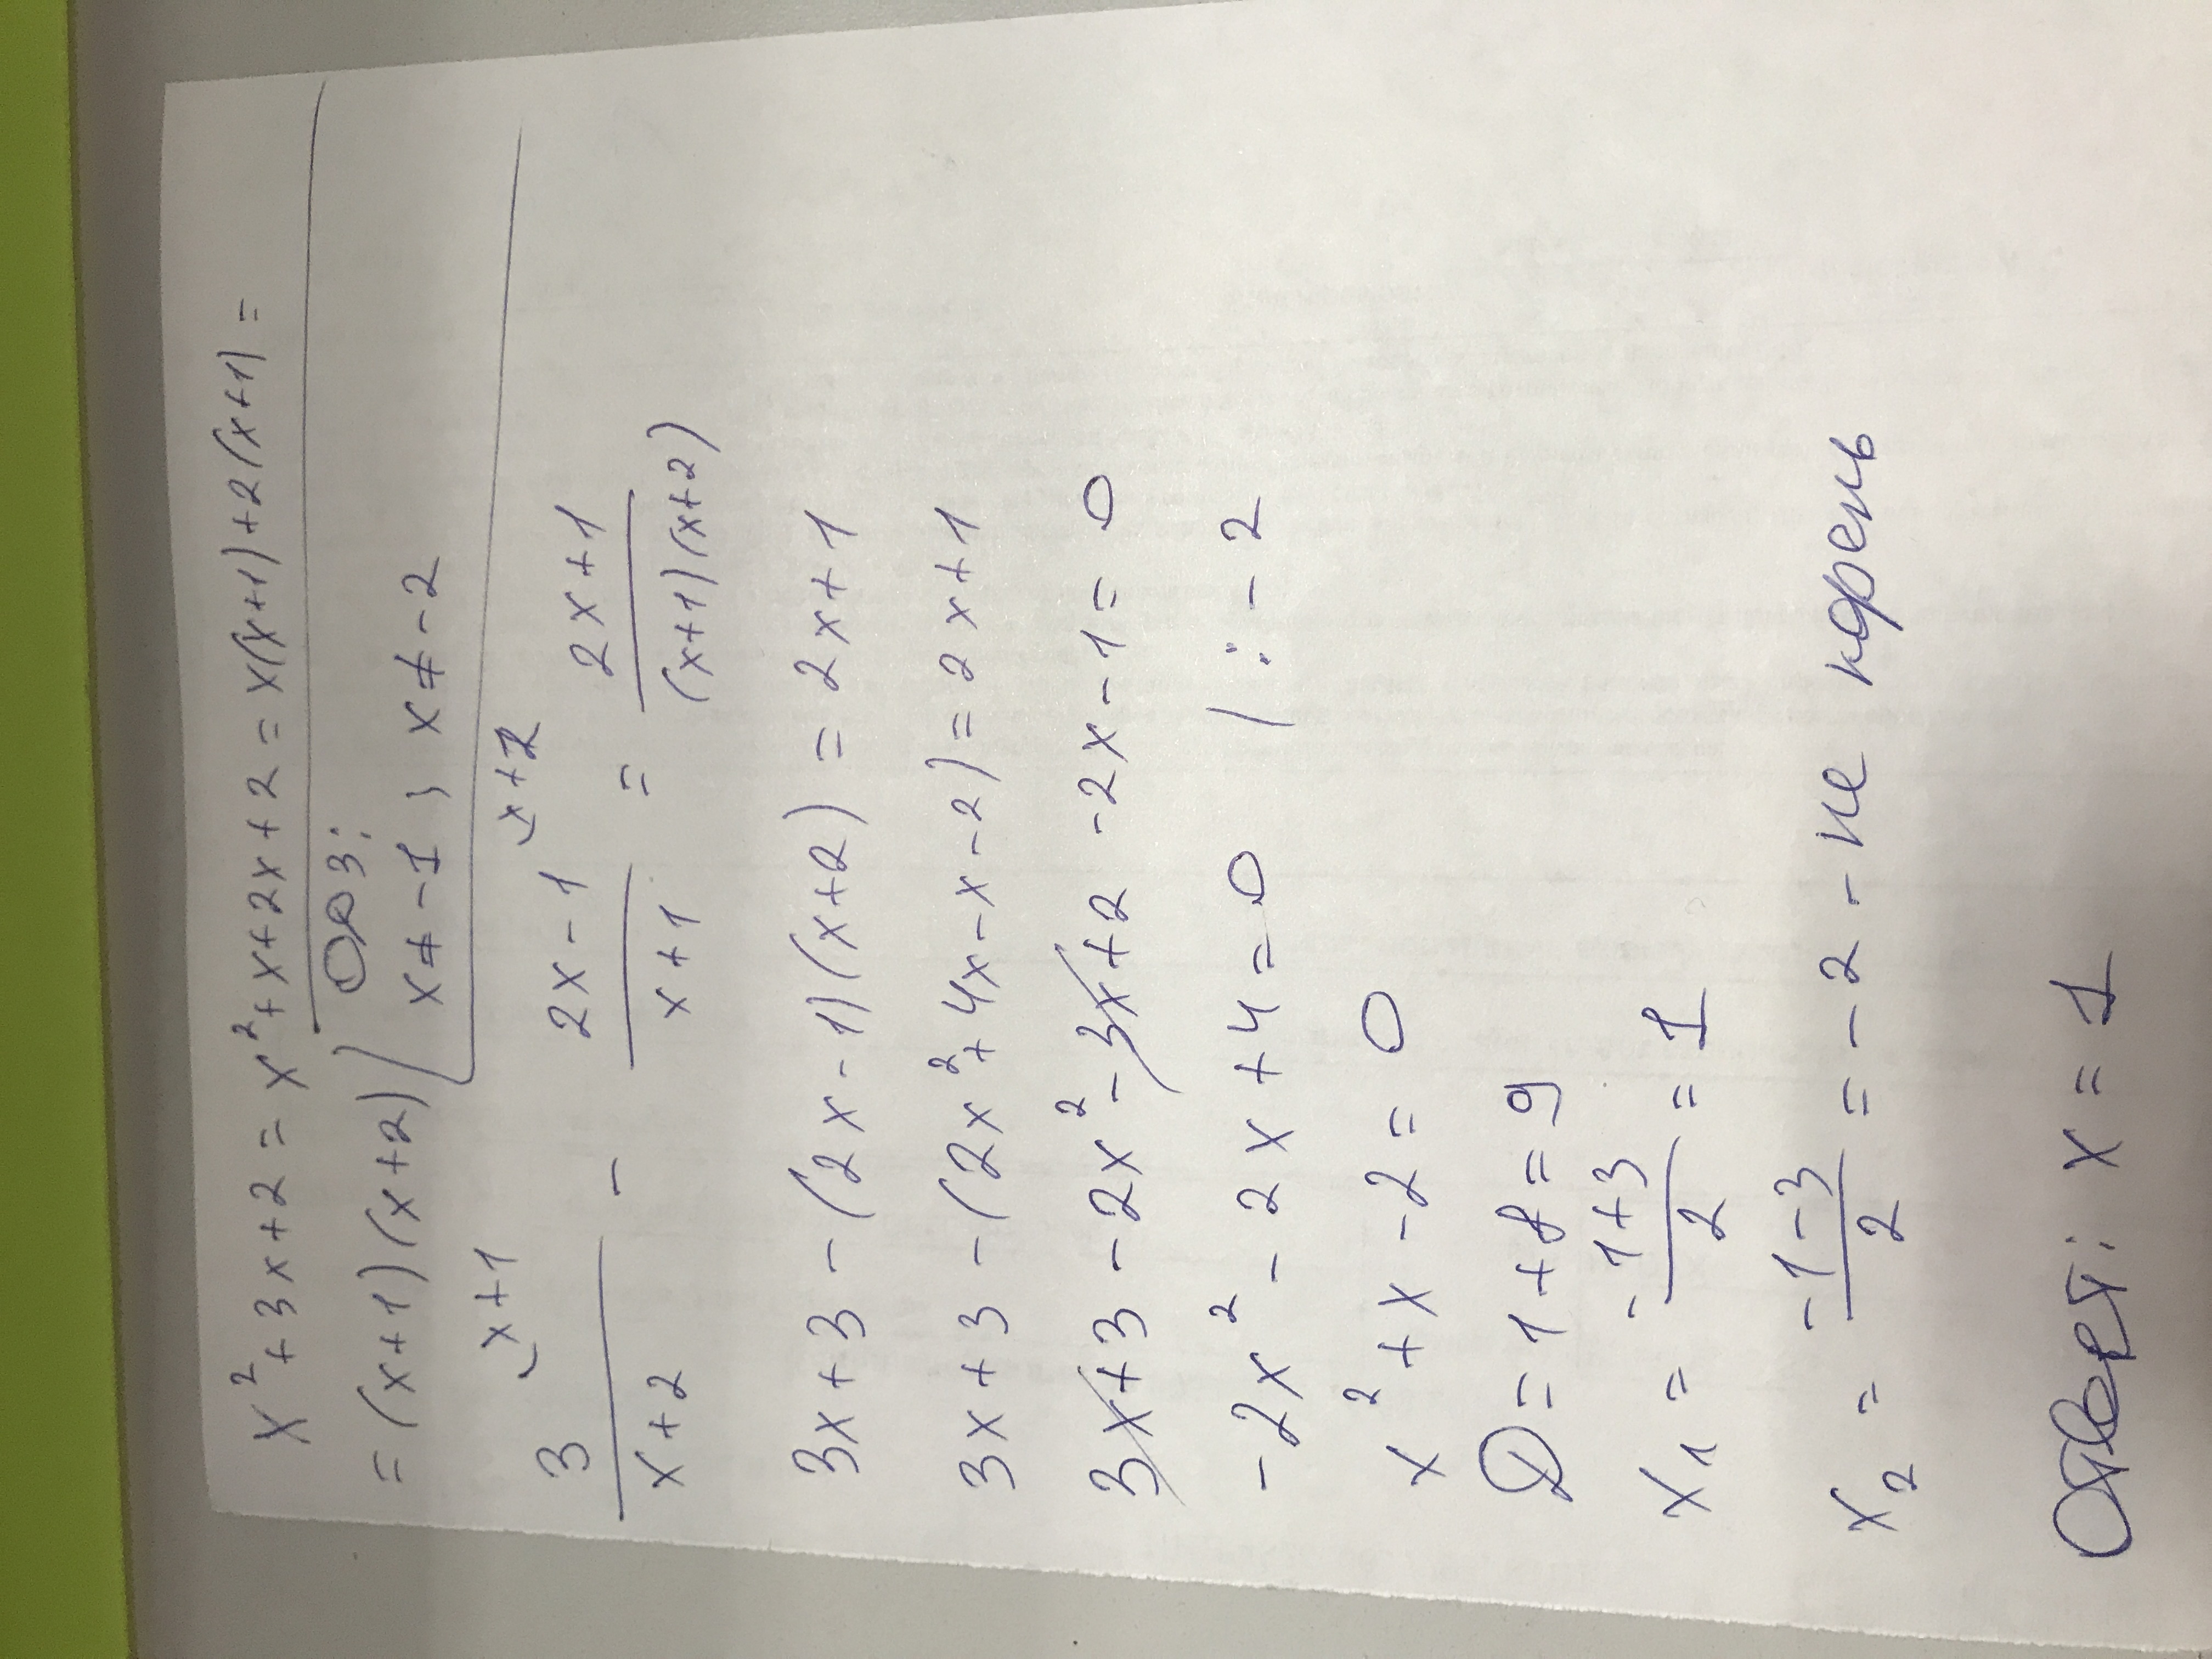 x² + 3x + 2 = x² + x + 2x + 2 = x(x+1) + 2(x+1) =
= (x+1)(x+2)
ОДЗ:
x ≠ -1, x ≠ -2
3 \x+1 / x+2 - 2x-1 \x+2 / x+1 = 2x+1 / (x+1)(x+2)
3x + 3 - (2x - 1)(x+2) = 2x + 1
3x + 3 - (2x² + 4x - x - 2) = 2x + 1
3x + 3 - 2x² - 3x + 2 - 2x - 1 = 0
-2x² - 2x + 4 = 0 | : -2
x² + x - 2 = 0
D = 1 + 8 = 9
x₁ = -1+3 / 2 = 1
x₂ = -1-3 / 2 = -2 - не корень
Ответ: x = 1